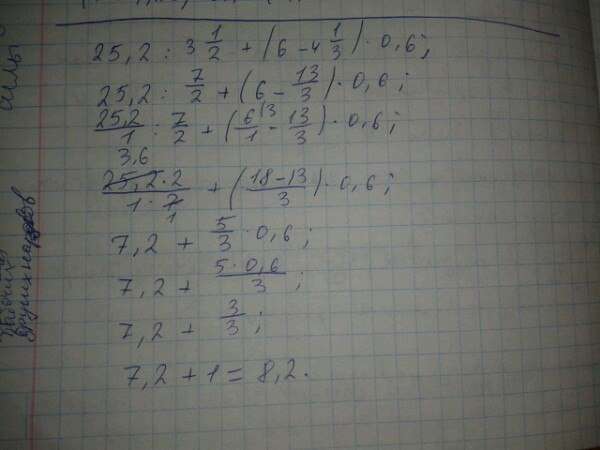 25,2 : 3 1/2 + (6 - 4 1/3) · 0,6;
25,2 : 7/2 + (6 - 13/3) · 0,6;
25,2/1 : 7/2 + (6/1 - 13/3) · 0,6;
3,6
25,2·2/1·7 + (18-13/3) · 0,6;
1
7,2 + 5/3 · 0,6;
7,2 + 5·0,6/3;
7,2 + 3/3;
7,2 + 1 = 8,2.
других